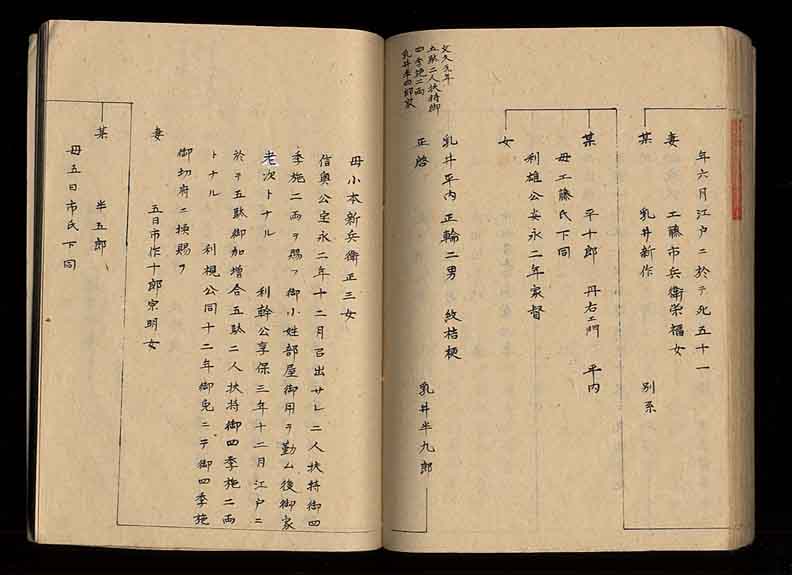 年六月江戸ニ於テ死五十一
妻　工藤市兵衛栄福女
某　乳井新作　別系
某　平十郎　丹右エ門　平内
母工藤氏下同
利雄公安永二年家督
女
文久元年
五駄二人扶持御
四季施二両
乳井半四郎家
乳井平内正輪二男　紋桔梗
正啓　乳井半九郎
母小本新兵衛正三女
信奥公宝永二年十二月召出サレ二人扶持御四
季施二両ヲ賜フ御小姓部屋御用ヲ勤ム後御家
老次トナル　利幹公享保三年十二月江戸ニ
於テ五駄御加増合五駄二人扶持御四季施二両
トナル　利視公同十二年御免ニテ御四季施
御切府ニ換賜フ
妻　五日市作十郎宗明女
某　半五郎
母五日市氏下同